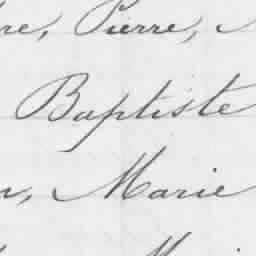 re, Pierre,
Baptiste
, Marie